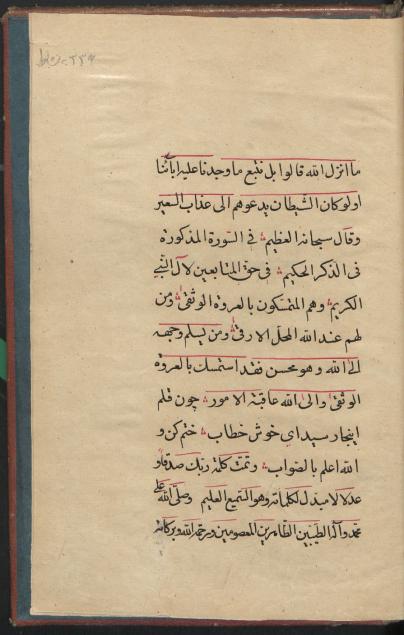 ما انزل الله قالوا بل نتبع ما وجدنا عليه ابائنا
اولو كان الشيطان يدعوهم الى عذاب السعير
وقال سبحانه العظيم في السورة المذكورة
في الذكر الحكيم في حق المتابعين لآل النبي
الكريم وهم المتمسكون بالعروة الوثقى ومن
لهم عند الله المحل الارقى ومن يسلم وجهه
الى الله وهو محسن فقد استمسك بالعروة
الوثقى والى الله عاقبة الامور چون قلم
اينجا رسيد اي خوش خطاب ختم كن و
الله اعلم بالصواب وتمت كلمة ربك صدقا و
عدلا لا مبدل لكلماته وهو السميع العليم وصلى الله على
محمد وآله الطيبين الطاهرين المعصومين ورحمة الله وبركاته